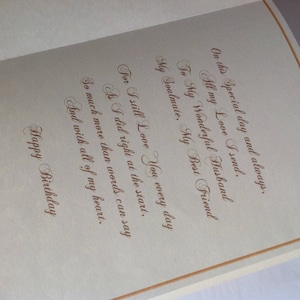 On this Special day and always,
All my Love I send,
To My Wonderful Husband
My Soulmate, My Best Friend
For I still Love You every day
As I did right at the start,
So much more than words can say
And with all of my heart.
Happy Birthday